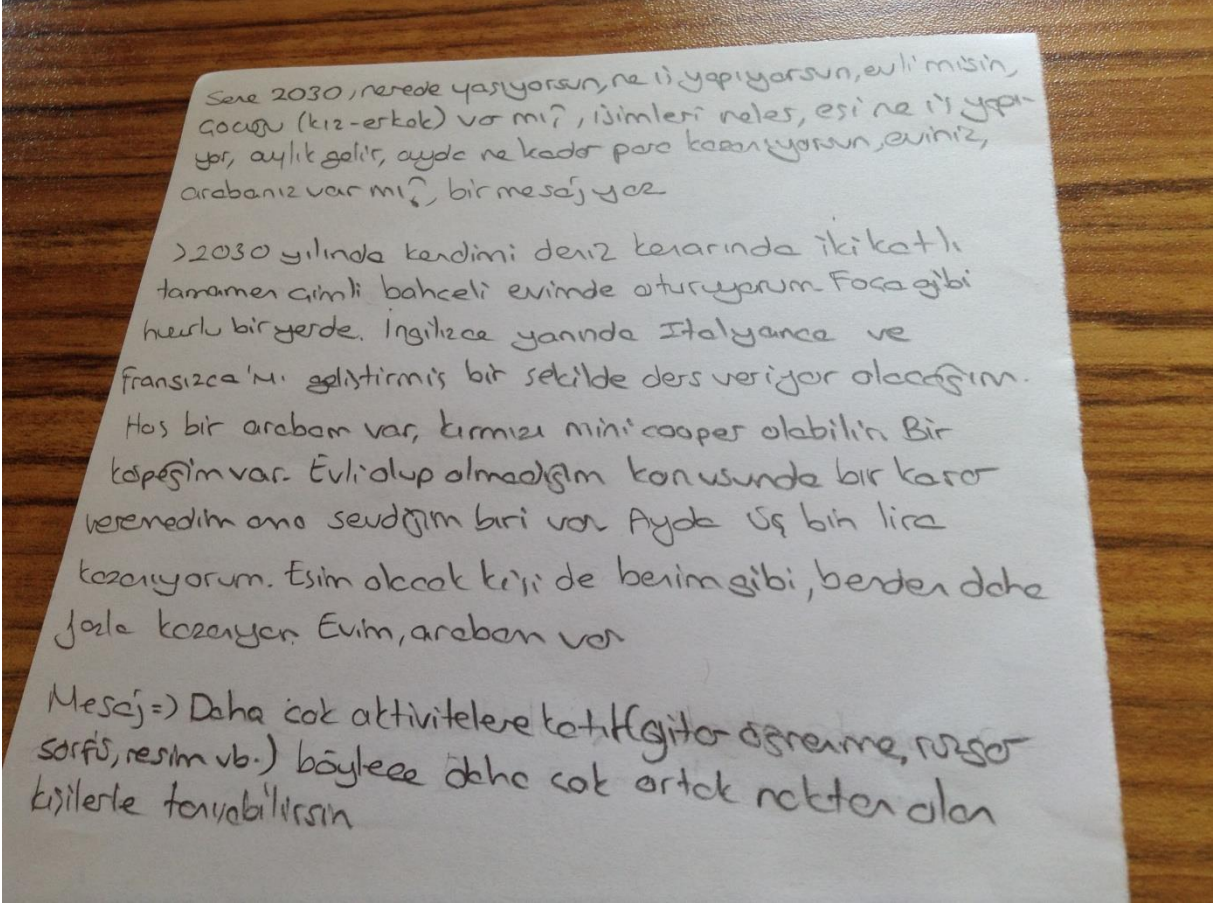 Sene 2030, nerede yaşıyorsun, ne iş yapıyorsun, evli misin,
çocuğu (kız-erkek) var mı?, isimleri neler, eşi ne iş yapı-
yor, aylık gelir, ayda ne kadar para kazanıyorsun, eviniz,
arabanız var mı?, bir mesaj yaz
>2030 yılında kendimi deniz kenarında iki katlı
tamamen çimli bahçeli evimde oturuyorum. Foça gibi
huzurlu bir yerde. İngilizce yanında İtalyanca ve
Fransızca'mı geliştirmiş bir şekilde ders veriyor olacağım.
Hoş bir arabam var, kırmızı mini cooper olabilir. Bir
köpeğim var. Evli olup olmadığım konusunda bir karar
veremedim ama sevdiğim biri var. Ayda üç bin lira
kazanıyorum. Eşim olacak kişi de benim gibi, benden daha
fazla kazanıyor. Evim, arabam var
Mesaj=) Daha çok aktivitelere katıl (gitar öğrenme, rüzgar
sörfü, resim vb.) böylece daha çok ortak noktan olan
kişilerle tanışabilirsin